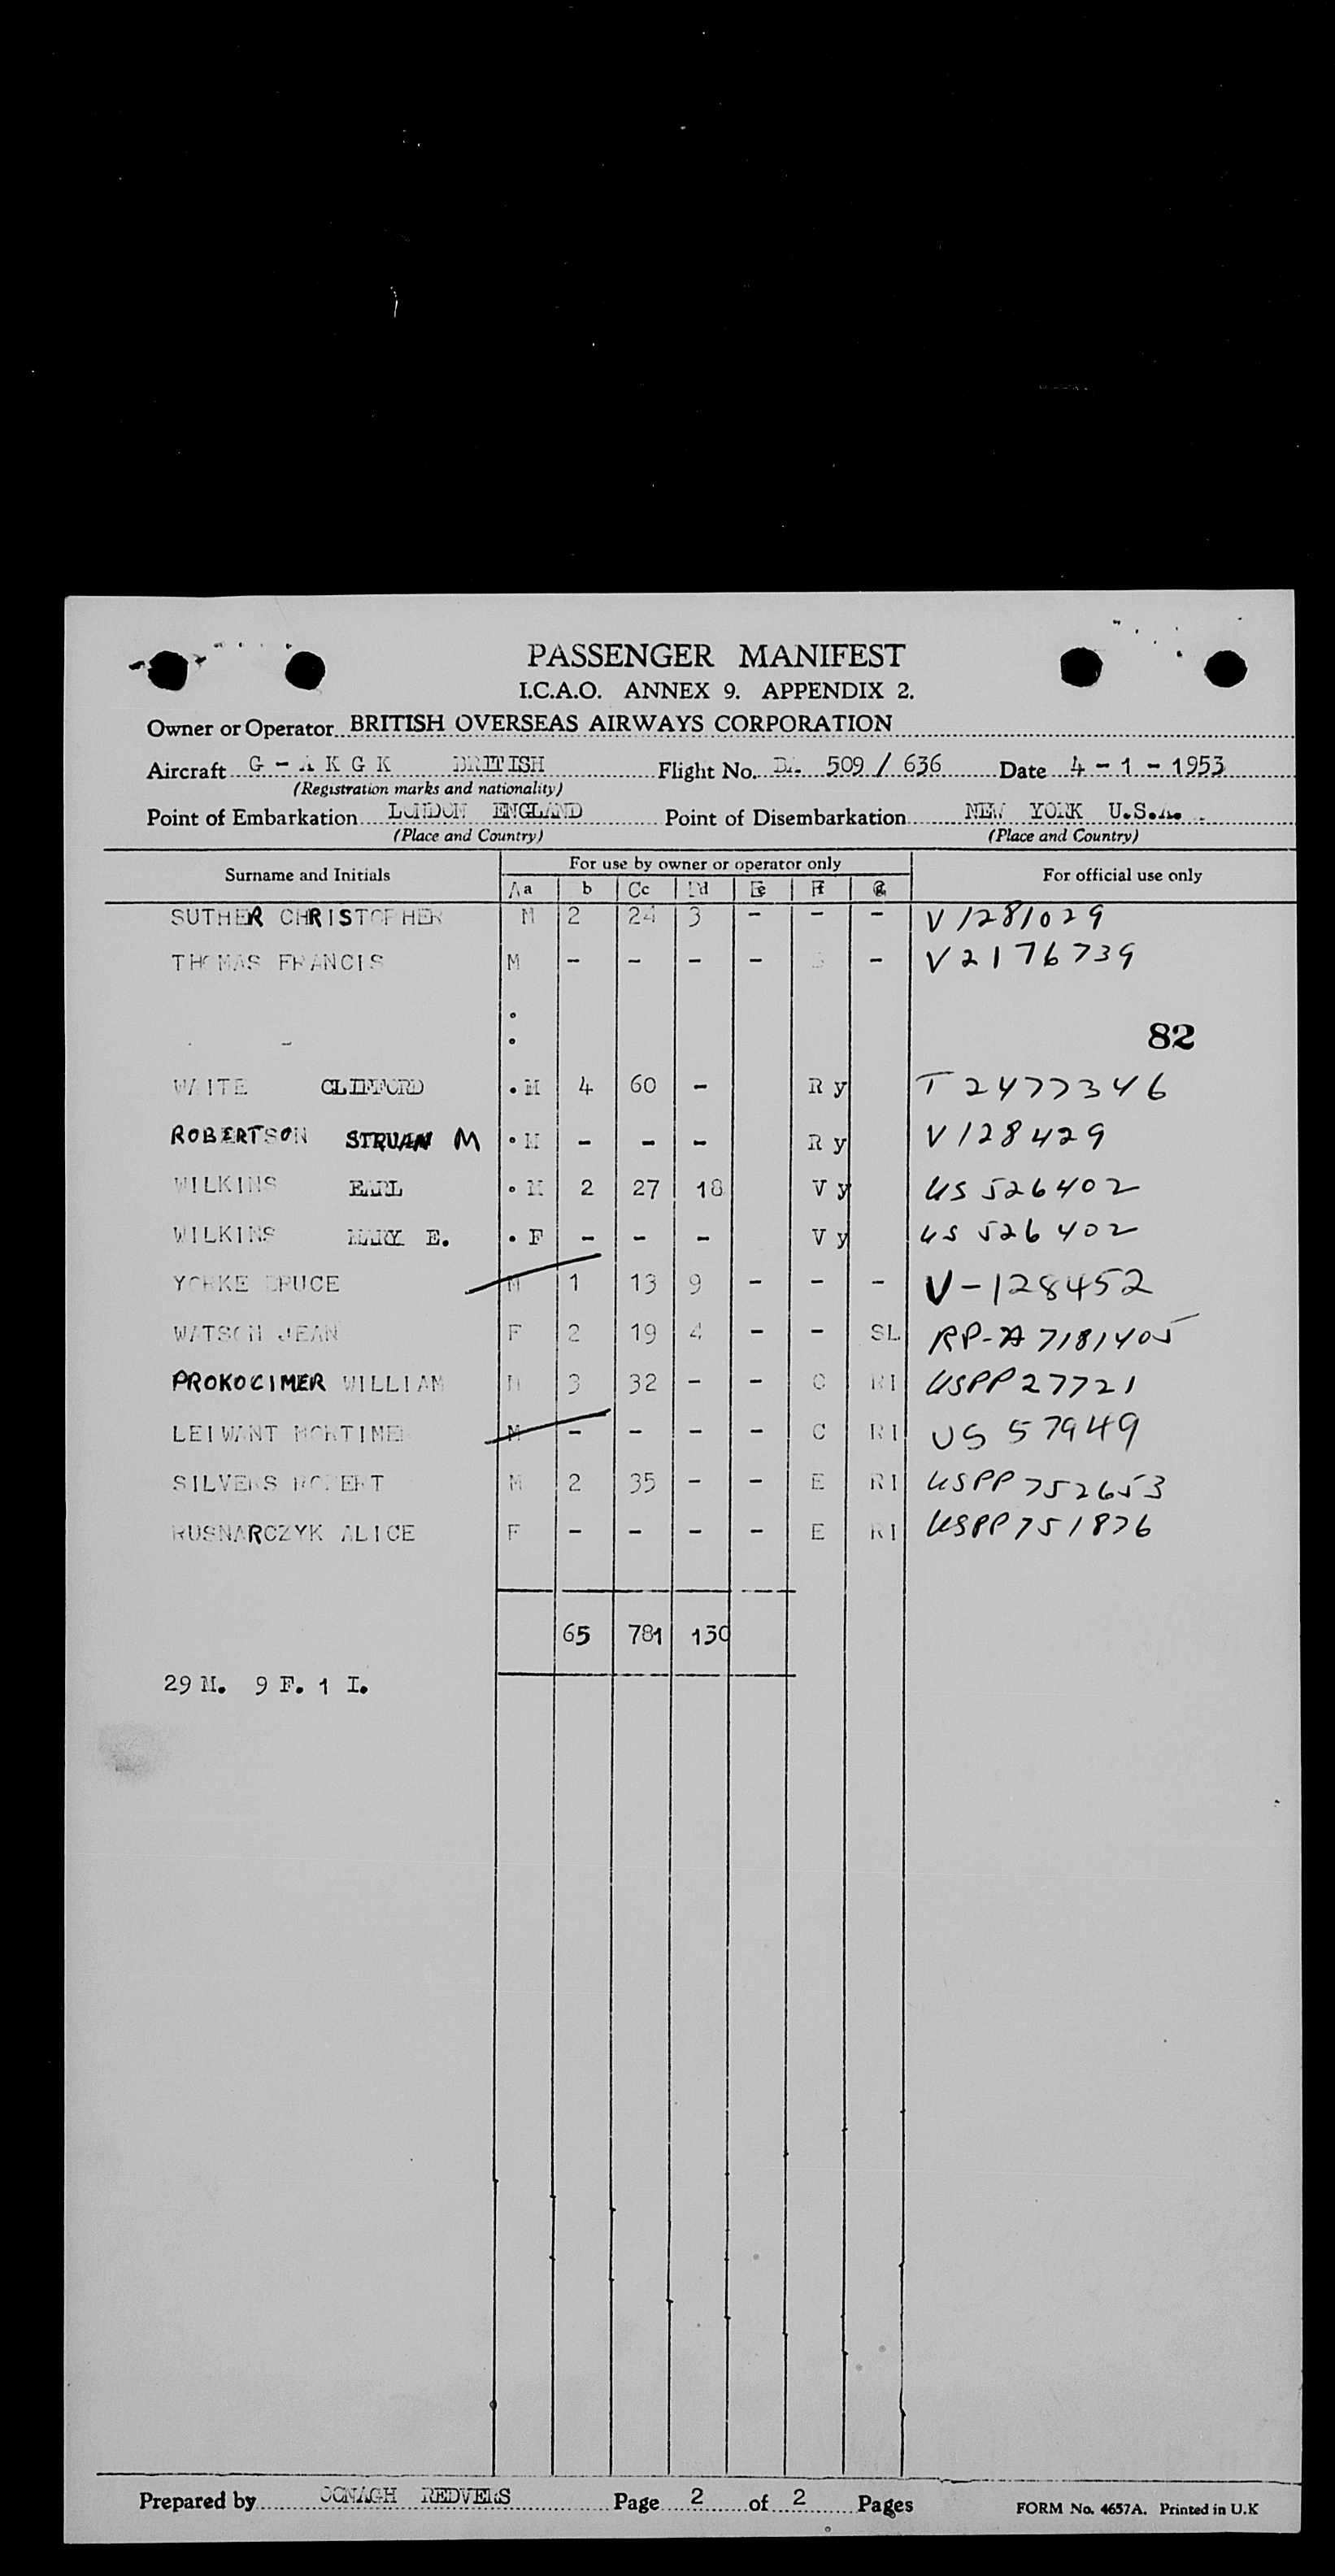 PASSENGER MANIFEST
I.C.A.O. ANNEX 9. APPENDIX 2.
Owner or Operator BRITISH OVERSEAS AIRWAYS CORPORATION
Aircraft G - A K G K BRITISH Flight No. BA 509 / 636 Date 4 - 1 - 1953
(Registration marks and nationality)
Point of Embarkation LONDON ENGLAND Point of Disembarkation NEW YORK U.S.A.
(Place and Country) (Place and Country)
Surname and Initials For use by owner or operator only For official use only
Aa b Cc d e F
SUTHER CHRISTOPHER M 2 24 3 - - - V 1281029
THOMAS FRANCIS M - - - - - V 2176739
82
WAITE CLIFFORD . M 4 60 - R y T 2477346
ROBERTSON STRUAN M . M - - - R y V 128429
WILKINS EARL . M 2 27 18 V y US 526402
WILKINS MARY E. . F - - - V y US 526402
YORKE BRUCE M 1 13 9 - - - V-128452
WATSON JEAN F 2 19 4 - - SL RP-A 7181405
PROKOCIMER WILLIAM M 3 32 - - C RI USPP 27721
LEIWANT MORTIMER M - - - - C RI US 57949
SILVERS ROBERT M 2 35 - - E RI USPP 752653
RUSNARCZYK ALICE F - - - - E RI USPP 751876
65 781 130
29 M. 9 F. 1 I.
Prepared by OONAGH REDVERS Page 2 of 2 Pages FORM No. 4657A. Printed in U.K